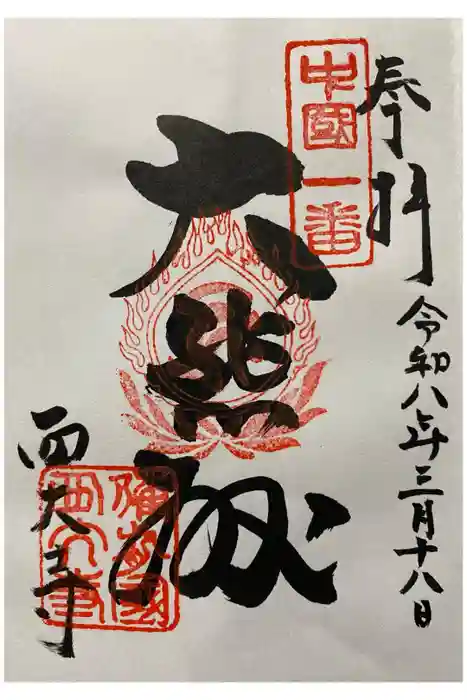 奉拝
中國一番
令和八年三月十八日
大悲殿
西大寺
西大寺